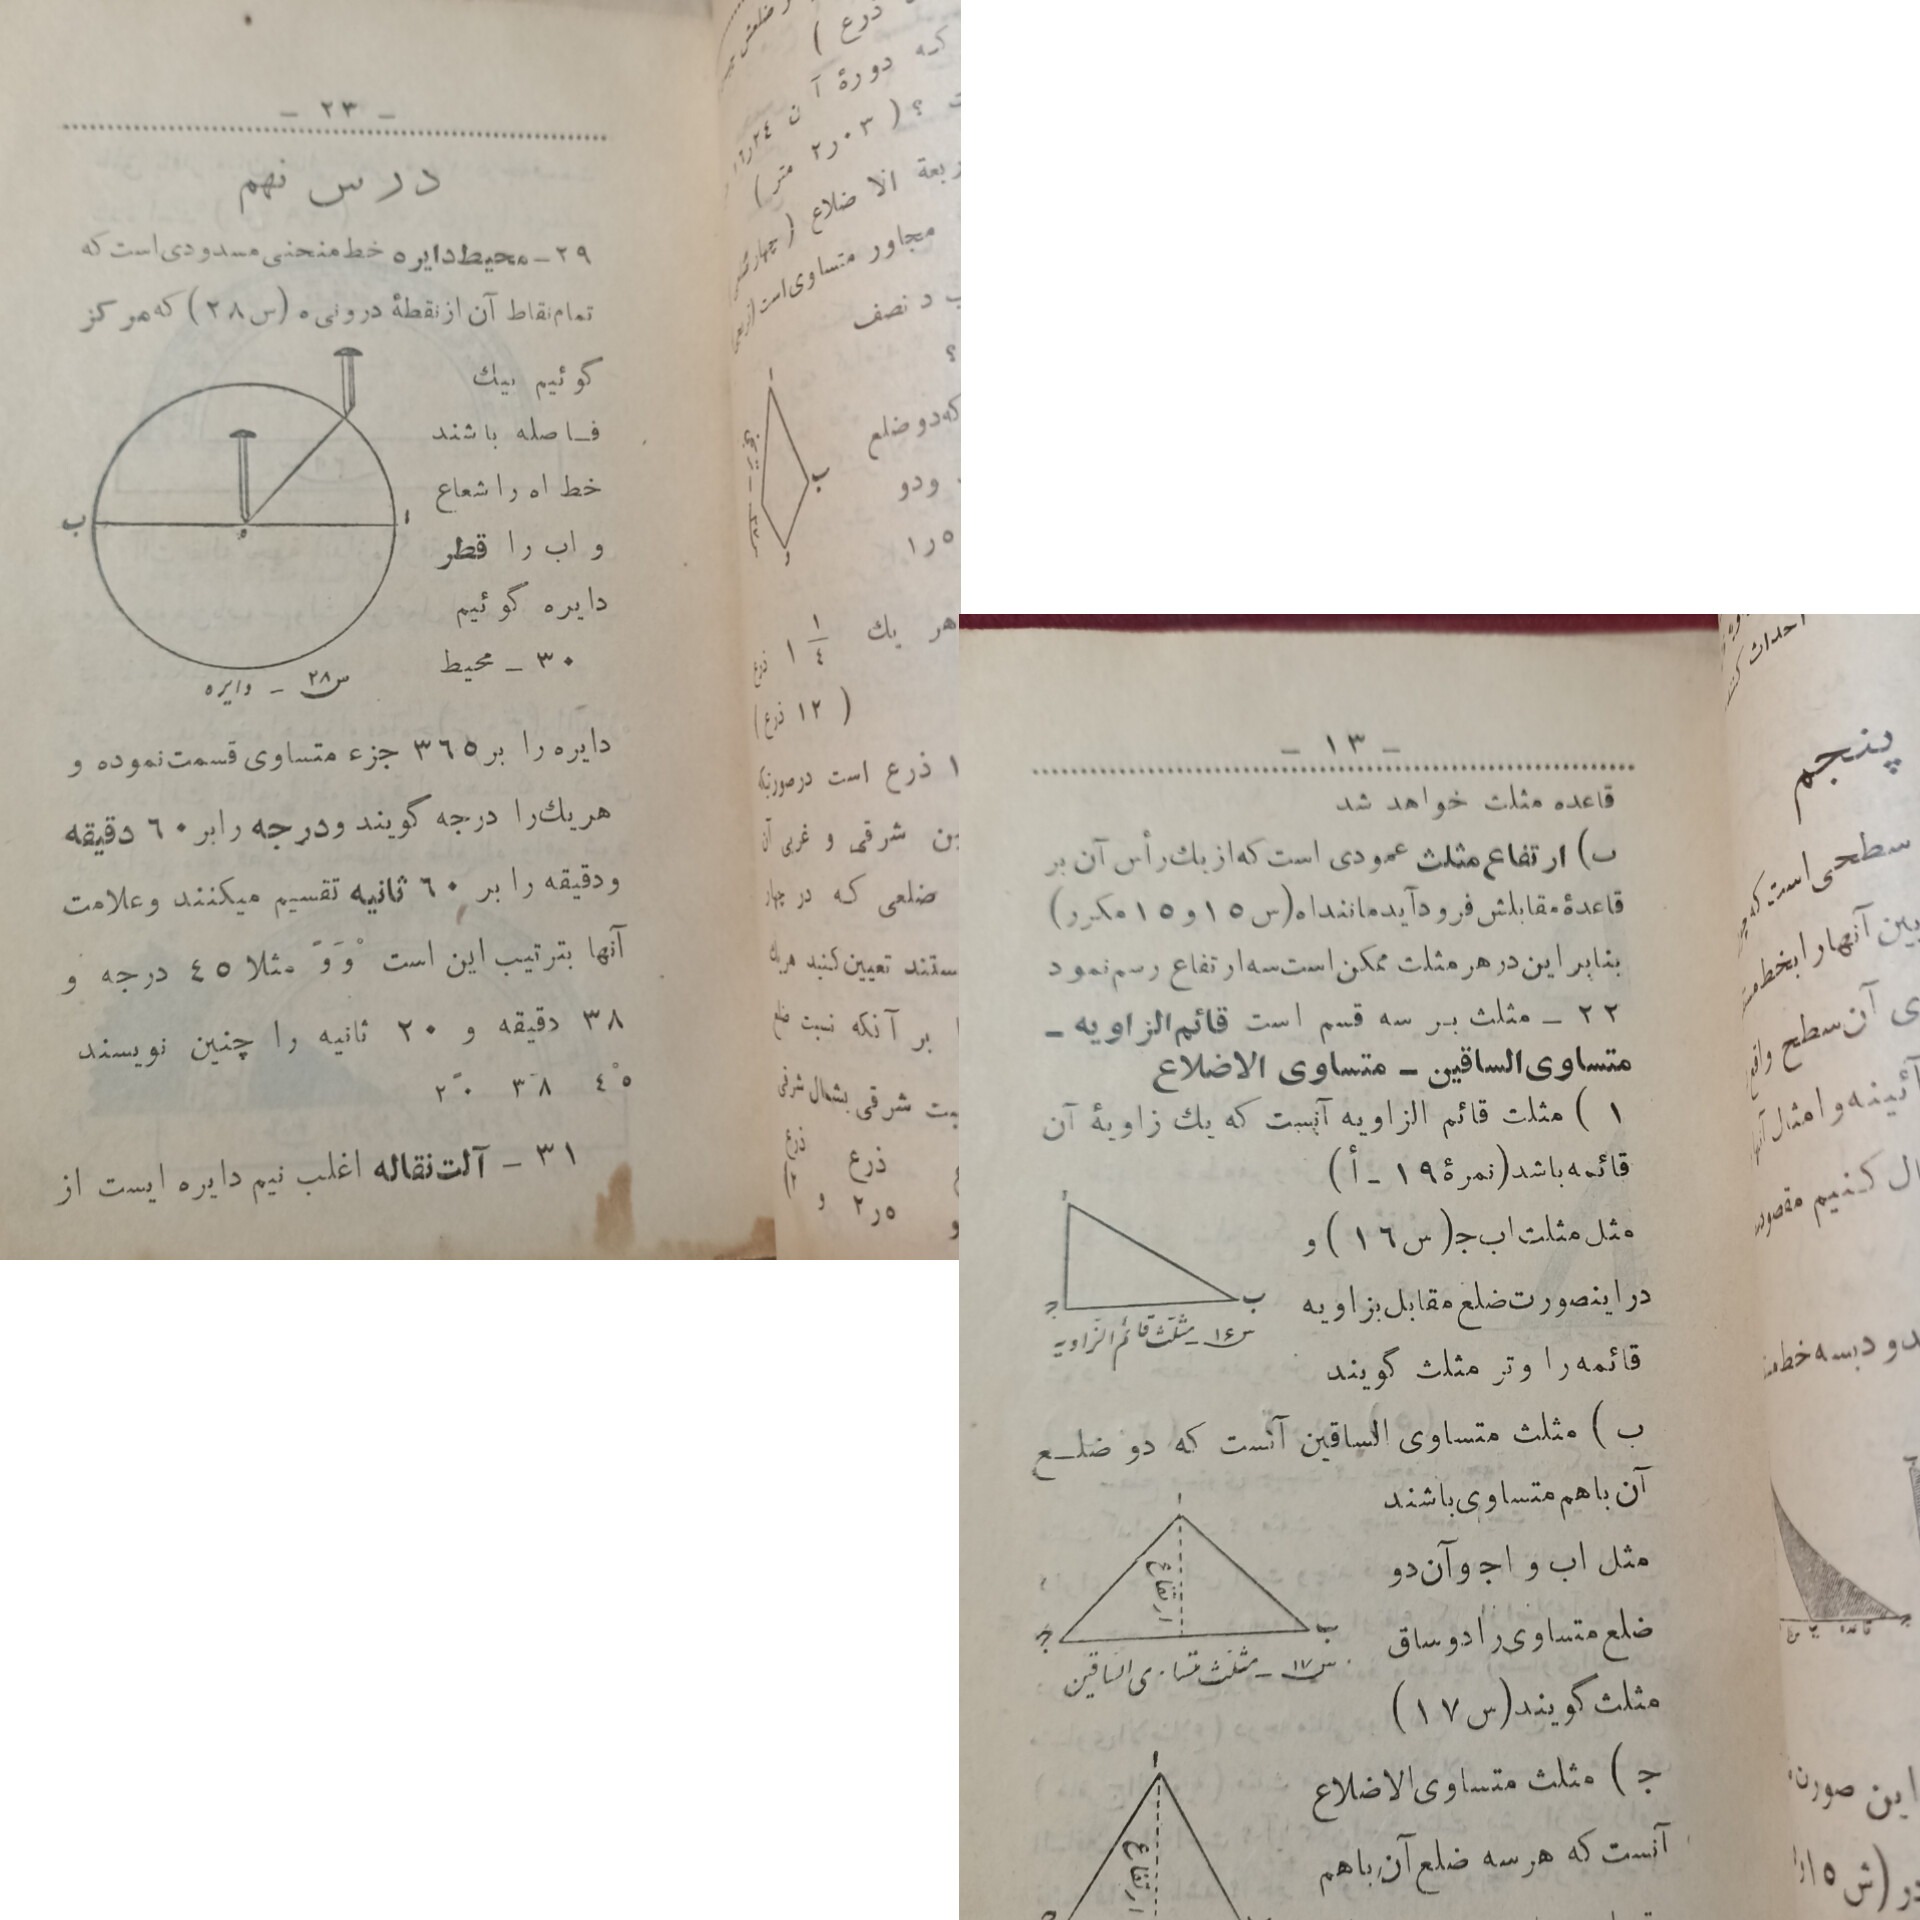 - ۲۳ -
درس نهم
۲۹ - محیط دایره خط منحنی مسدودی است که
تمام نقاط آن از نقطهٔ درونی ه (س ۲۸) که مرکز
گوئیم بیك
فاصله باشند
خط اه را شعاع
و اب را قطر
دایره گوئیم
۳۰ - محیط
ب
ا
ه
س ۲۸ - دایره
دایره را بر ۳٦٥ جزء متساوی قسمت نموده و
هر یك را درجه گویند و درجه را بر ٦۰ دقیقه
و دقیقه را بر ٦۰ ثانیه تقسیم میکنند و علامت
آنها بترتیب این است مثلا ٤٥ درجه و
۳۸ دقیقه و ۲۰ ثانیه را چنین نویسند
٤٥ ۳۸ ۲۰
۳۱ - آلت نقاله اغلب نیم دایره ایست از
ذرع )
که دورهٔ آن
(۲ر۰۳ متر)
الاضلاع (چهار
مجاور متساوی است
د نصف
؟
که دو ضلع
ا
ب
و دو
۱ر٥
هر یك ۱ ۱/٤ ذرع
(۱۲ ذرع)
ذرع است در صورتیکه
شرقی و غربی آن
ضلعی که در چهار
تعیین کنید هر یك
بر آنکه نسبت ضلع
شرقی بشمال شرقی
ذرع ذرع
۲ر٥ و
- ۱۳ -
قاعده مثلث خواهد شد
ب) ارتفاع مثلث عمودی است که از یك رأس آن بر
قاعدهٔ مقابلش فرود آید مانند اه (س ۱٥ و ۱٥ مکرر)
بنابر این در هر مثلث ممکن است سه ارتفاع رسم نمود
۲۲ - مثلث بر سه قسم است قائم الزاویه -
متساوی الساقین - متساوی الاضلاع
۱ ) مثلث قائم الزاویه آنست که یك زاویهٔ آن
قائمه باشد (نمرهٔ ۱۹ - أ)
مثل مثلث اب ج (س ۱٦) و
در اینصورت ضلع مقابل بزاویه
قائمه را وتر مثلث گویند
ا
ب
ج
س ۱۶ - مثلث قائم الزاویه
ب ) مثلث متساوی الساقین آنست که دو ضلع
آن باهم متساوی باشند
مثل اب و اج و آن دو
ضلع متساوی را دو ساق
مثلث گویند (س ۱۷)
ا
ارتفاع
ب
ج
س ۱۷ - مثلث متساوی الساقین
ج ) مثلث متساوی الاضلاع
آنست که هر سه ضلع آن باهم
ا
ارتفاع
احداث کنند
پنجم
سطحی است که
بین آنها را بخط
آن سطح واقع
آئینه و امثال آنها
کنیم مقصود
سه خط
قاعده
این صورت